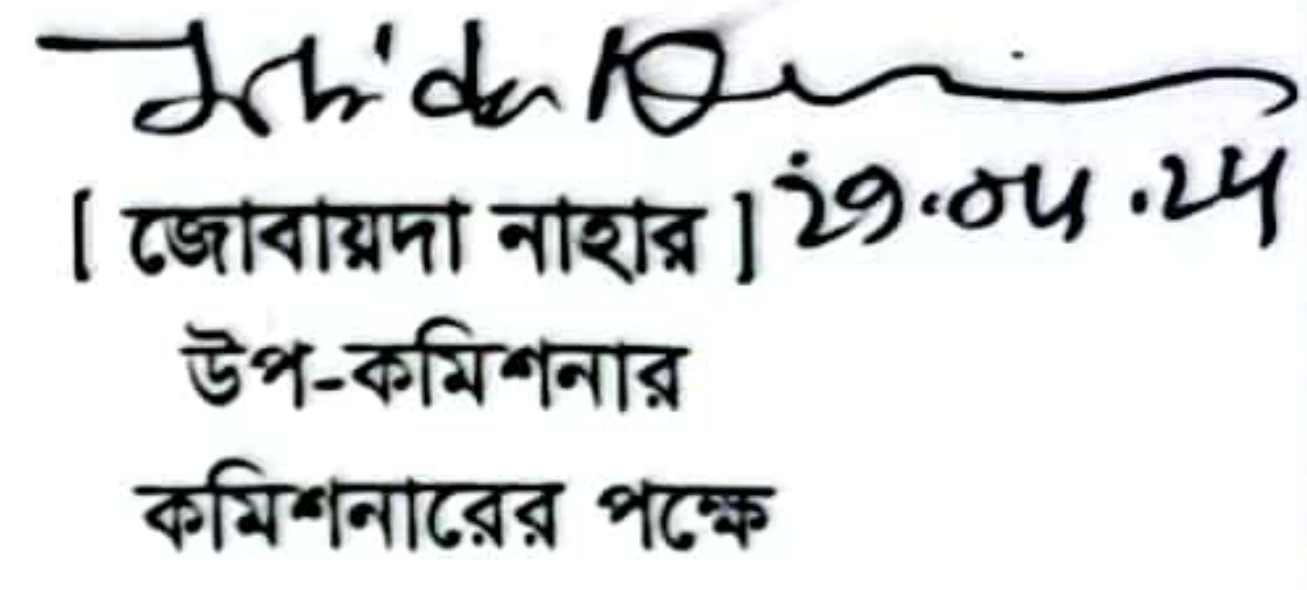 [ জোবায়দা নাহার ] 29.04.24
উপ-কমিশনার
কমিশনারের পক্ষে